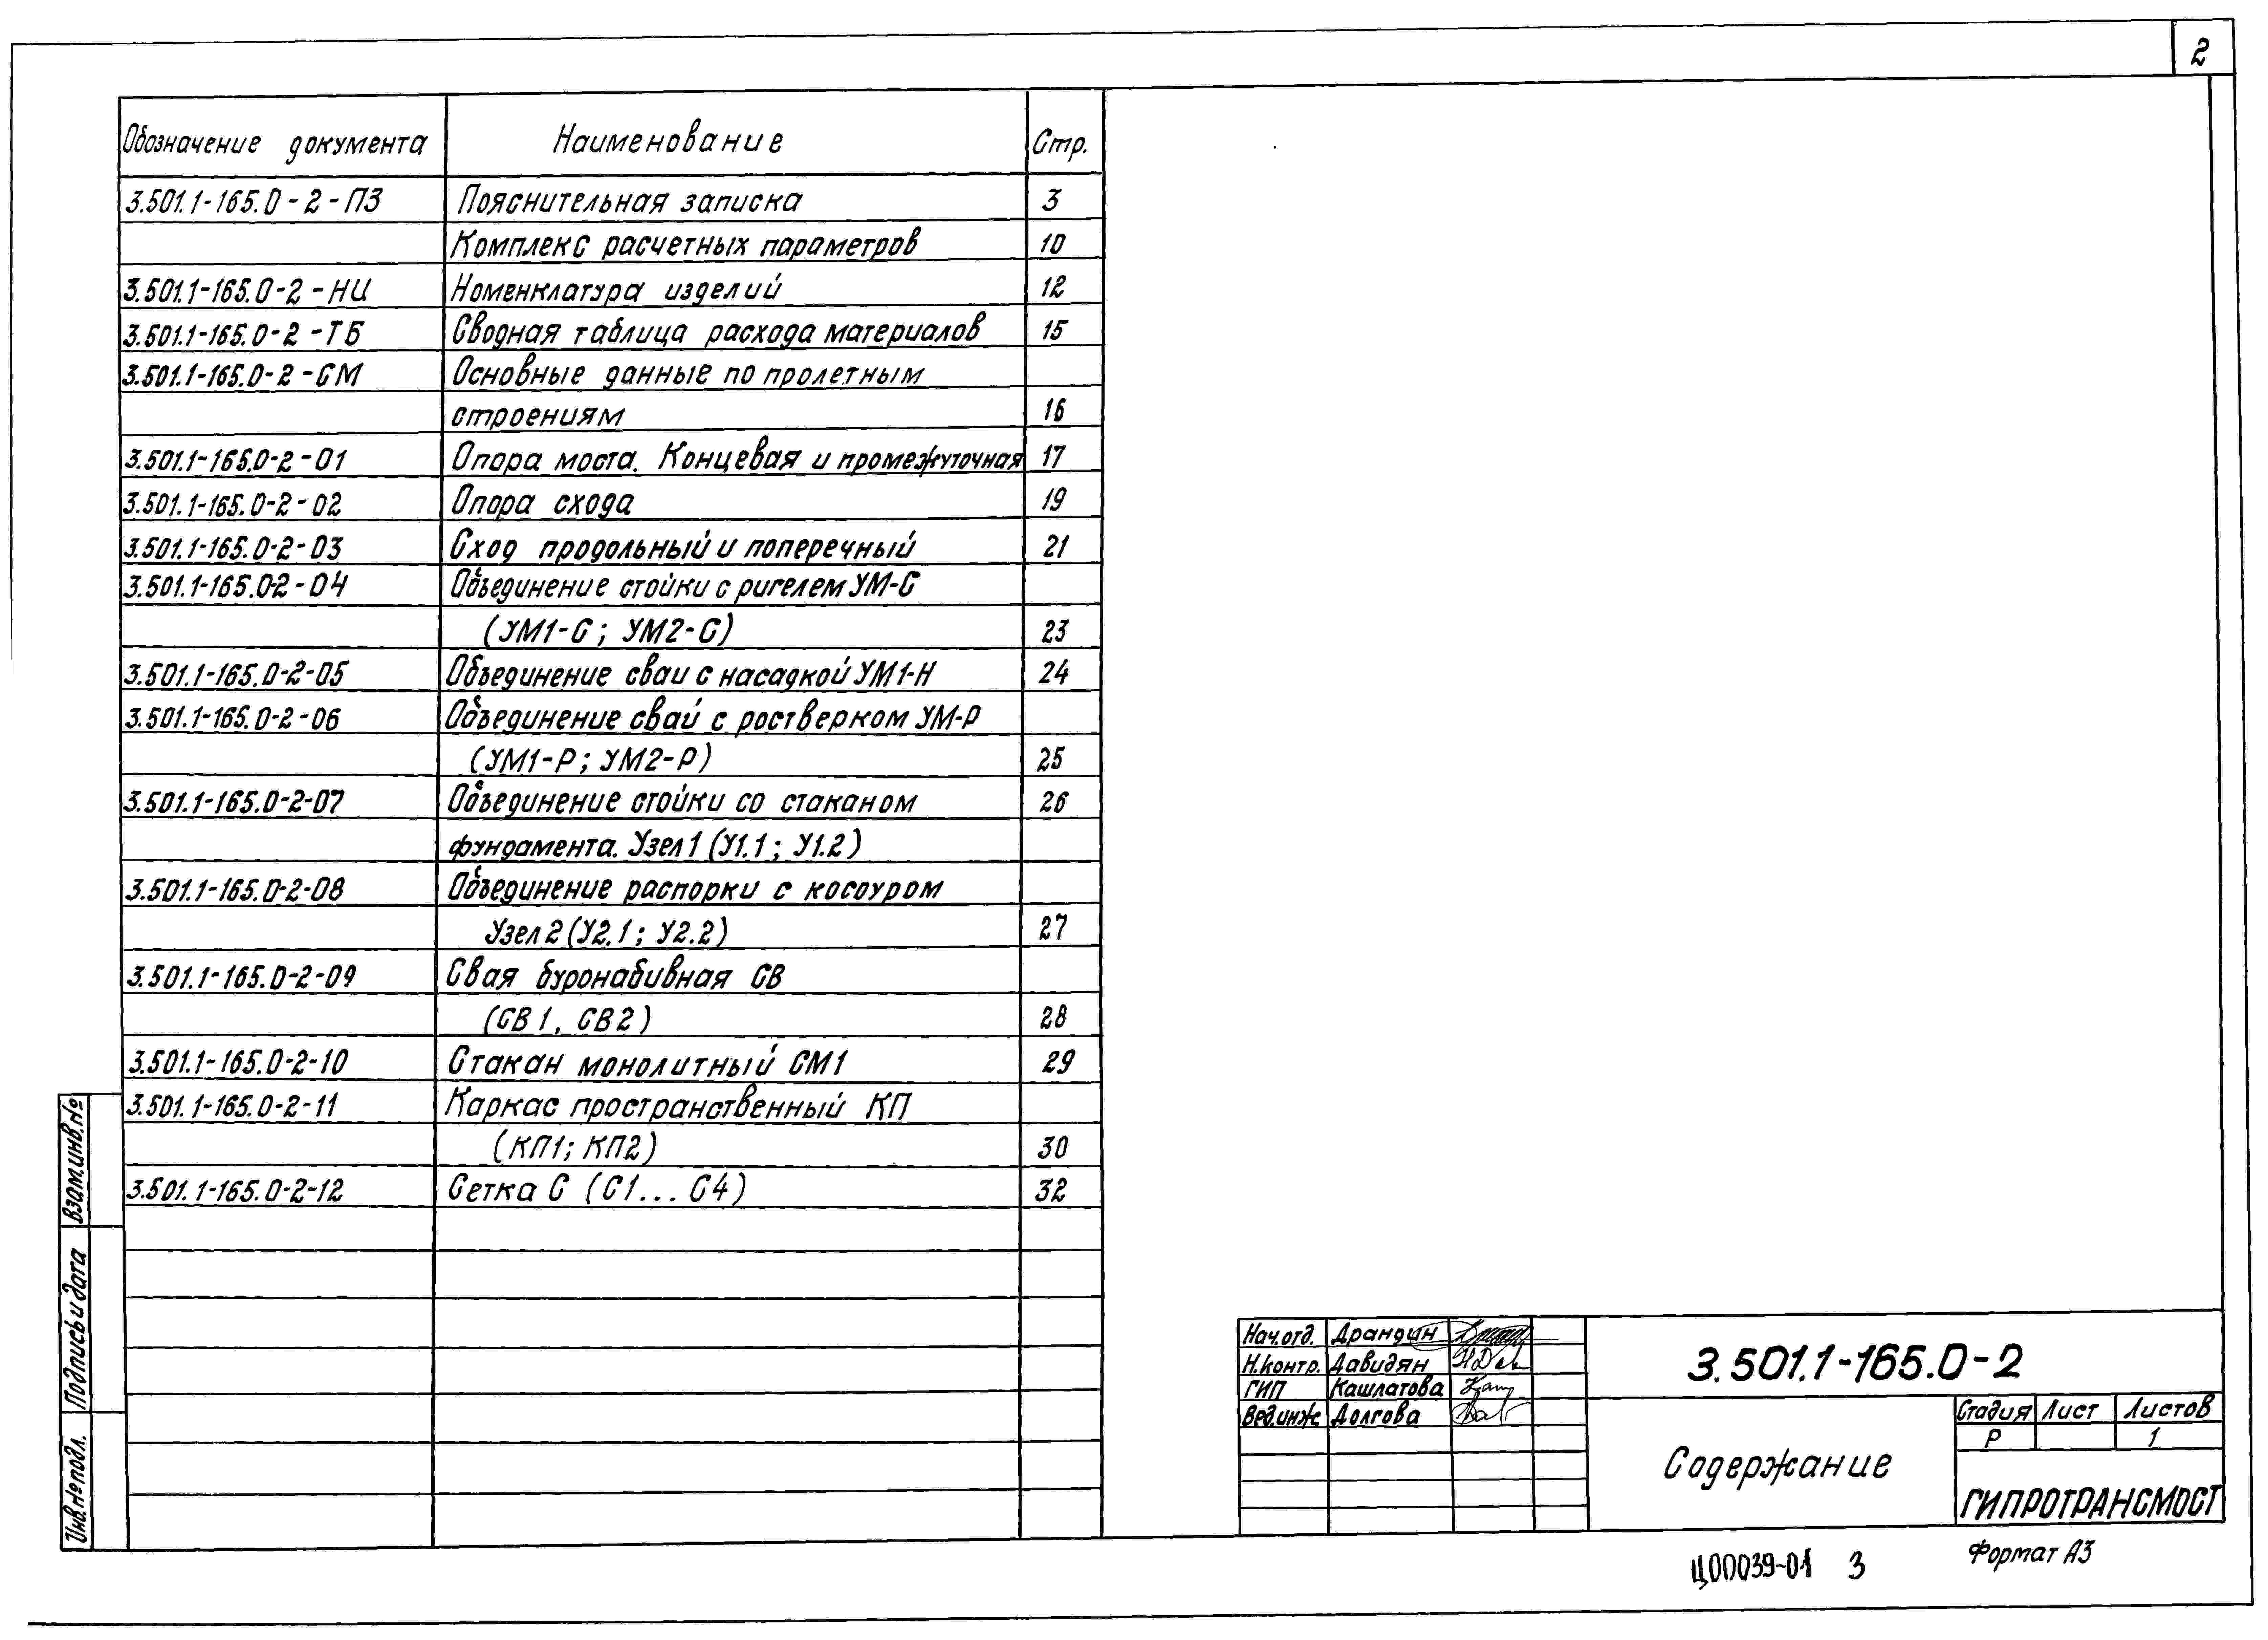 2
Обозначение документа Наименование Стр.
3.501.1-165.0-2-ПЗ Пояснительная записка 3
Комплекс расчетных параметров 10
3.501.1-165.0-2-НИ Номенклатура изделий 12
3.501.1-165.0-2-ТБ Сводная таблица расхода материалов 15
3.501.1-165.0-2-СМ Основные данные по пролетным
строениям 16
3.501.1-165.0-2-01 Опора моста. Концевая и промежуточная 17
3.501.1-165.0-2-02 Опора схода 19
3.501.1-165.0-2-03 Сход продольный и поперечный 21
3.501.1-165.0-2-04 Объединение стойки с ригелем УМ-С
(УМ1-С; УМ2-С) 23
3.501.1-165.0-2-05 Объединение сваи с насадкой УМ1-Н 24
3.501.1-165.0-2-06 Объединение свай с ростверком УМ-Р
(УМ1-Р; УМ2-Р) 25
3.501.1-165.0-2-07 Объединение стойки со стаканом 26
фундамента. Узел 1 (У1.1; У1.2)
3.501.1-165.0-2-08 Объединение распорки с косоуром
Узел 2 (У2.1; У2.2) 27
3.501.1-165.0-2-09 Свая буронабивная СВ
(СВ1, СВ2) 28
3.501.1-165.0-2-10 Стакан монолитный СМ1 29
3.501.1-165.0-2-11 Каркас пространственный КП
(КП1; КП2) 30
3.501.1-165.0-2-12 Сетка С (С1... С4) 32
Взам.инв.№
Подпись и дата
Инв.№ подл.
Нач.отд. Драндин
Н.контр. Давидян
ГИП Кашлатова
Вед.инж. Долгова
3.501.1-165.0-2
Содержание
Стадия Лист Листов
Р 1
ГИПРОТРАНСМОСТ
Ц00039-01 3
Формат А3